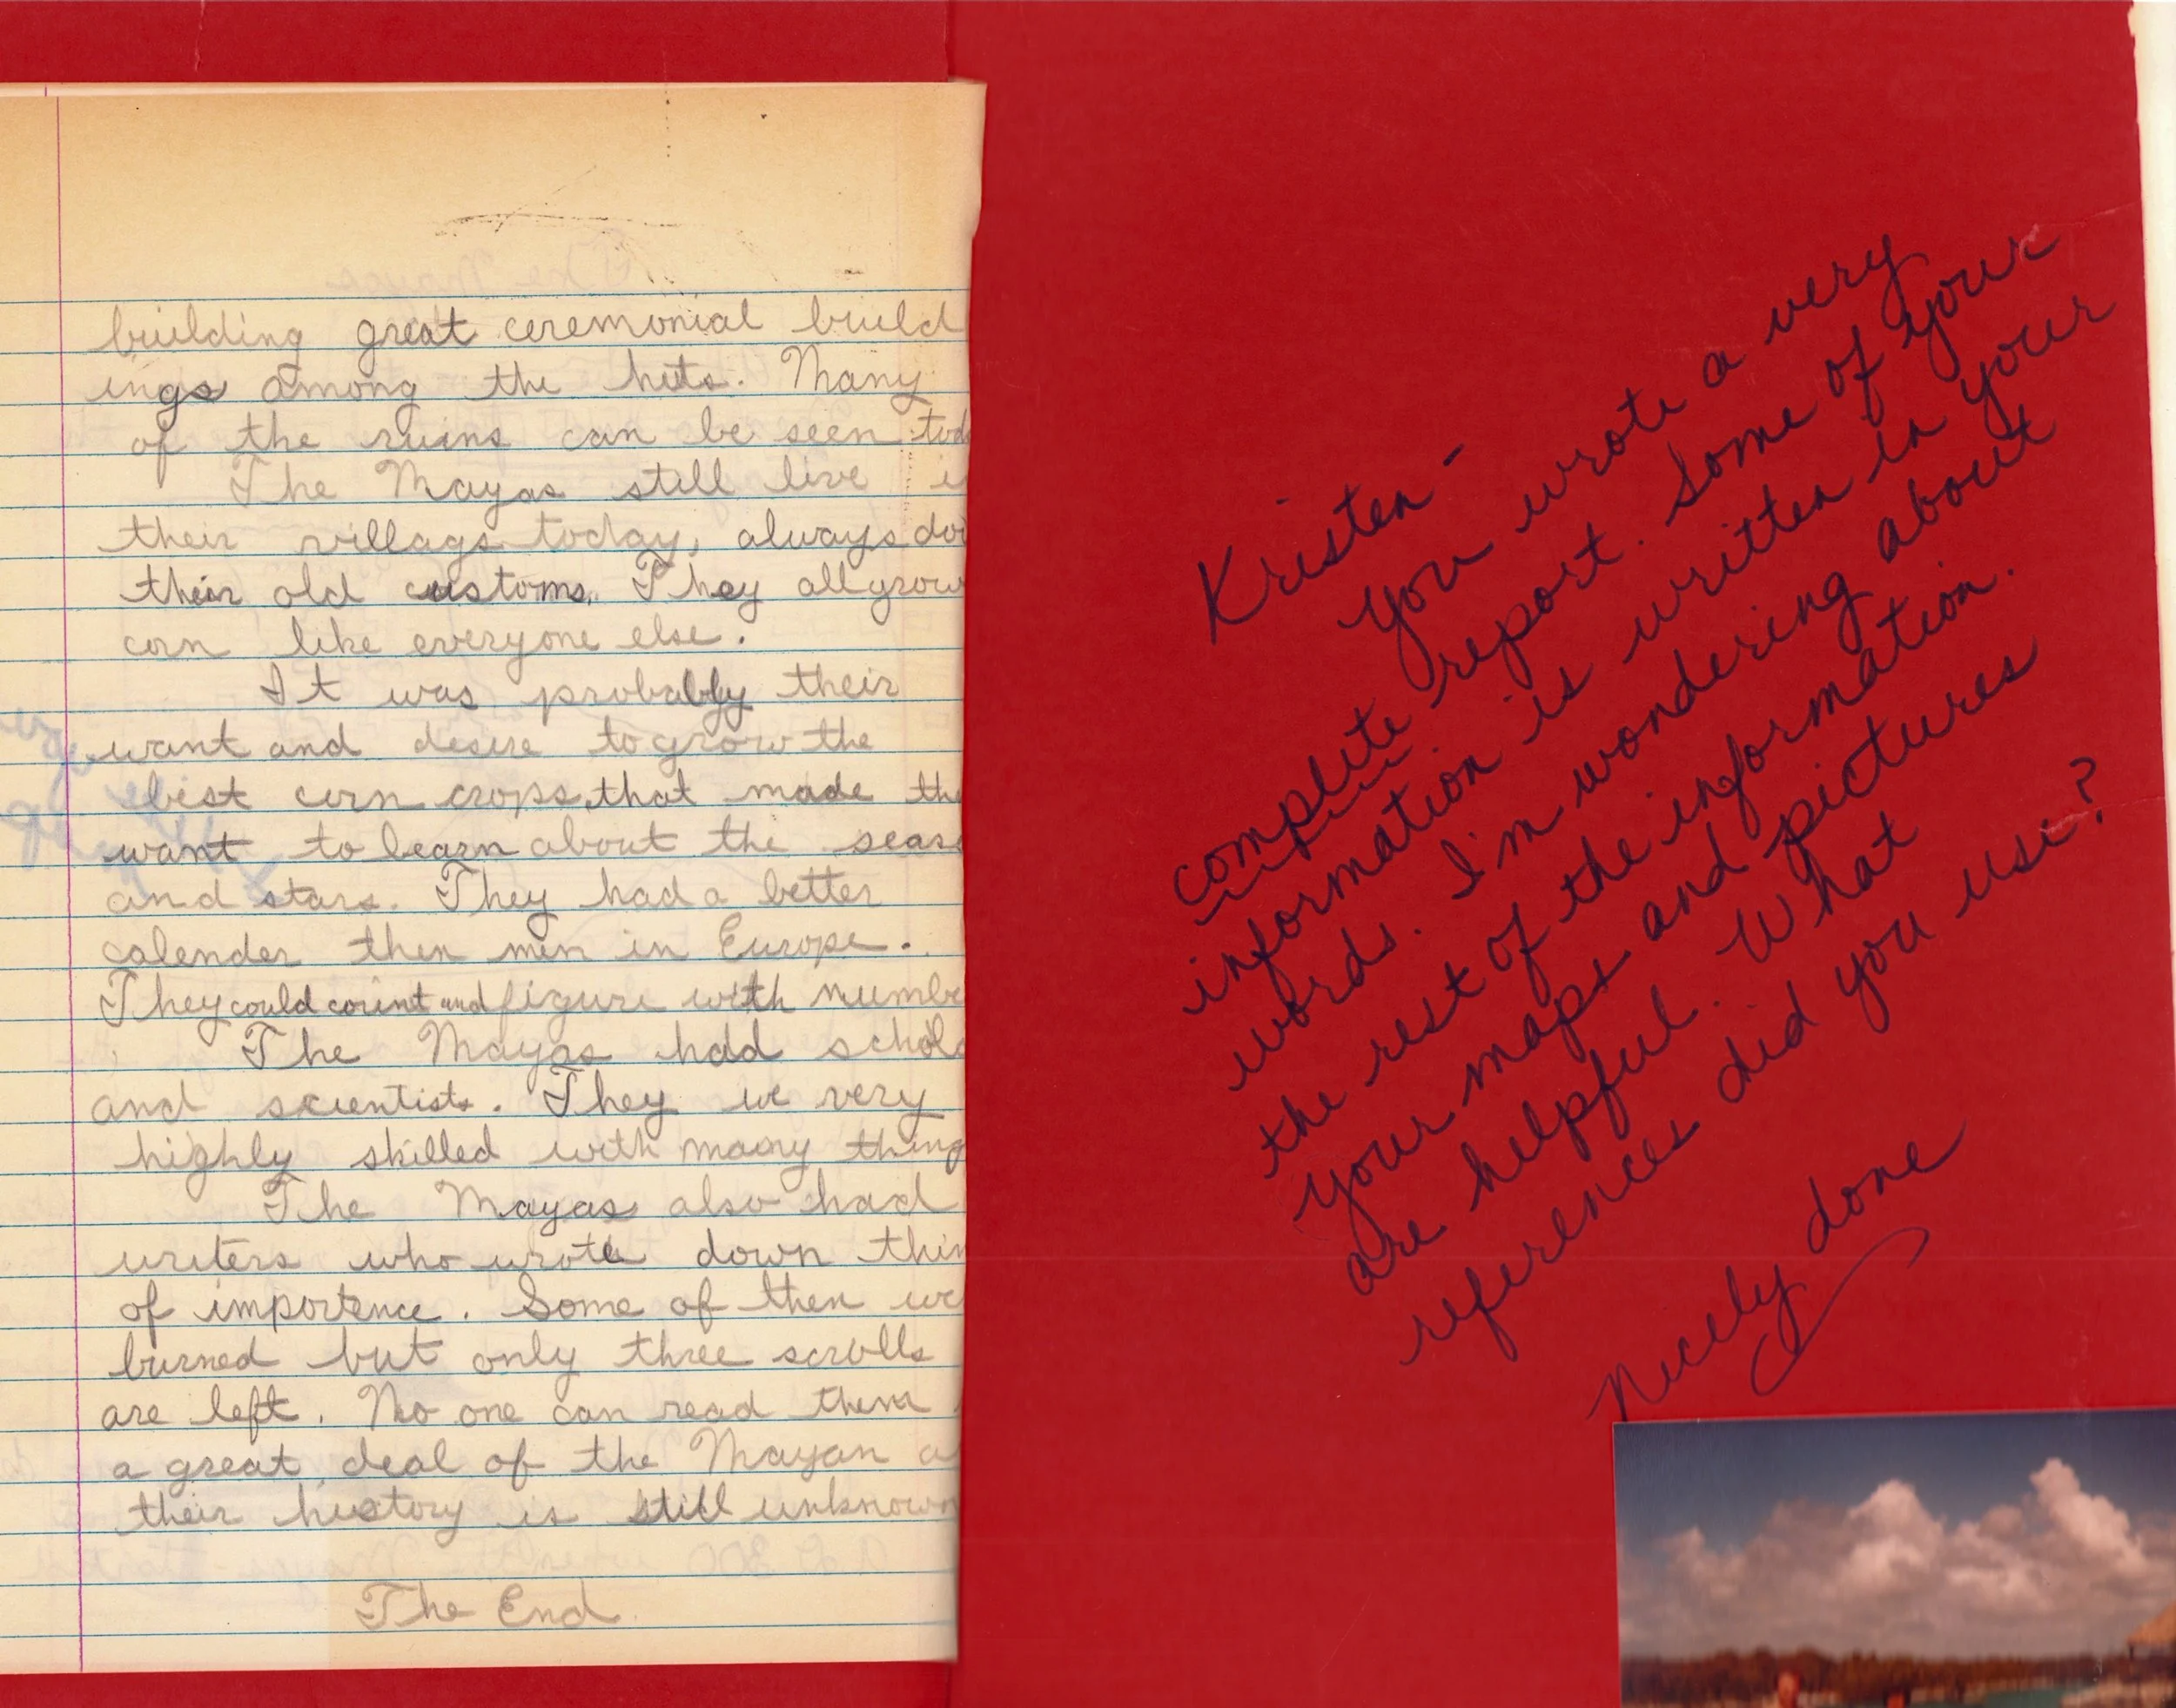 building great ceremonial build
ings among the huts. Many
of the ruins can be seen tod
The Mayas still live i
their villags today, always doi
their old customs. They all grow
corn like everyone else.
It was probably their
want and desire to grow the
best corn crops, that made the
want to learn about the seas
and stars. They had a better
calender then men in Europe.
They could count and figure with numbe
The Mayas had schol
and scientists. They we very
highly skilled with many thing
The Mayas also had
writers who wrote down thin
of importence. Some of then we
burned but only three scrolls
are left. No one can read them
a great deal of the Mayan a
their history is still unknown
The End
Kristen -
You wrote a very
complete report. Some of your
information is written in your
words. I'm wondering about
the rest of the information.
Your maps and pictures
are helpful. What
references did you use?
Nicely done